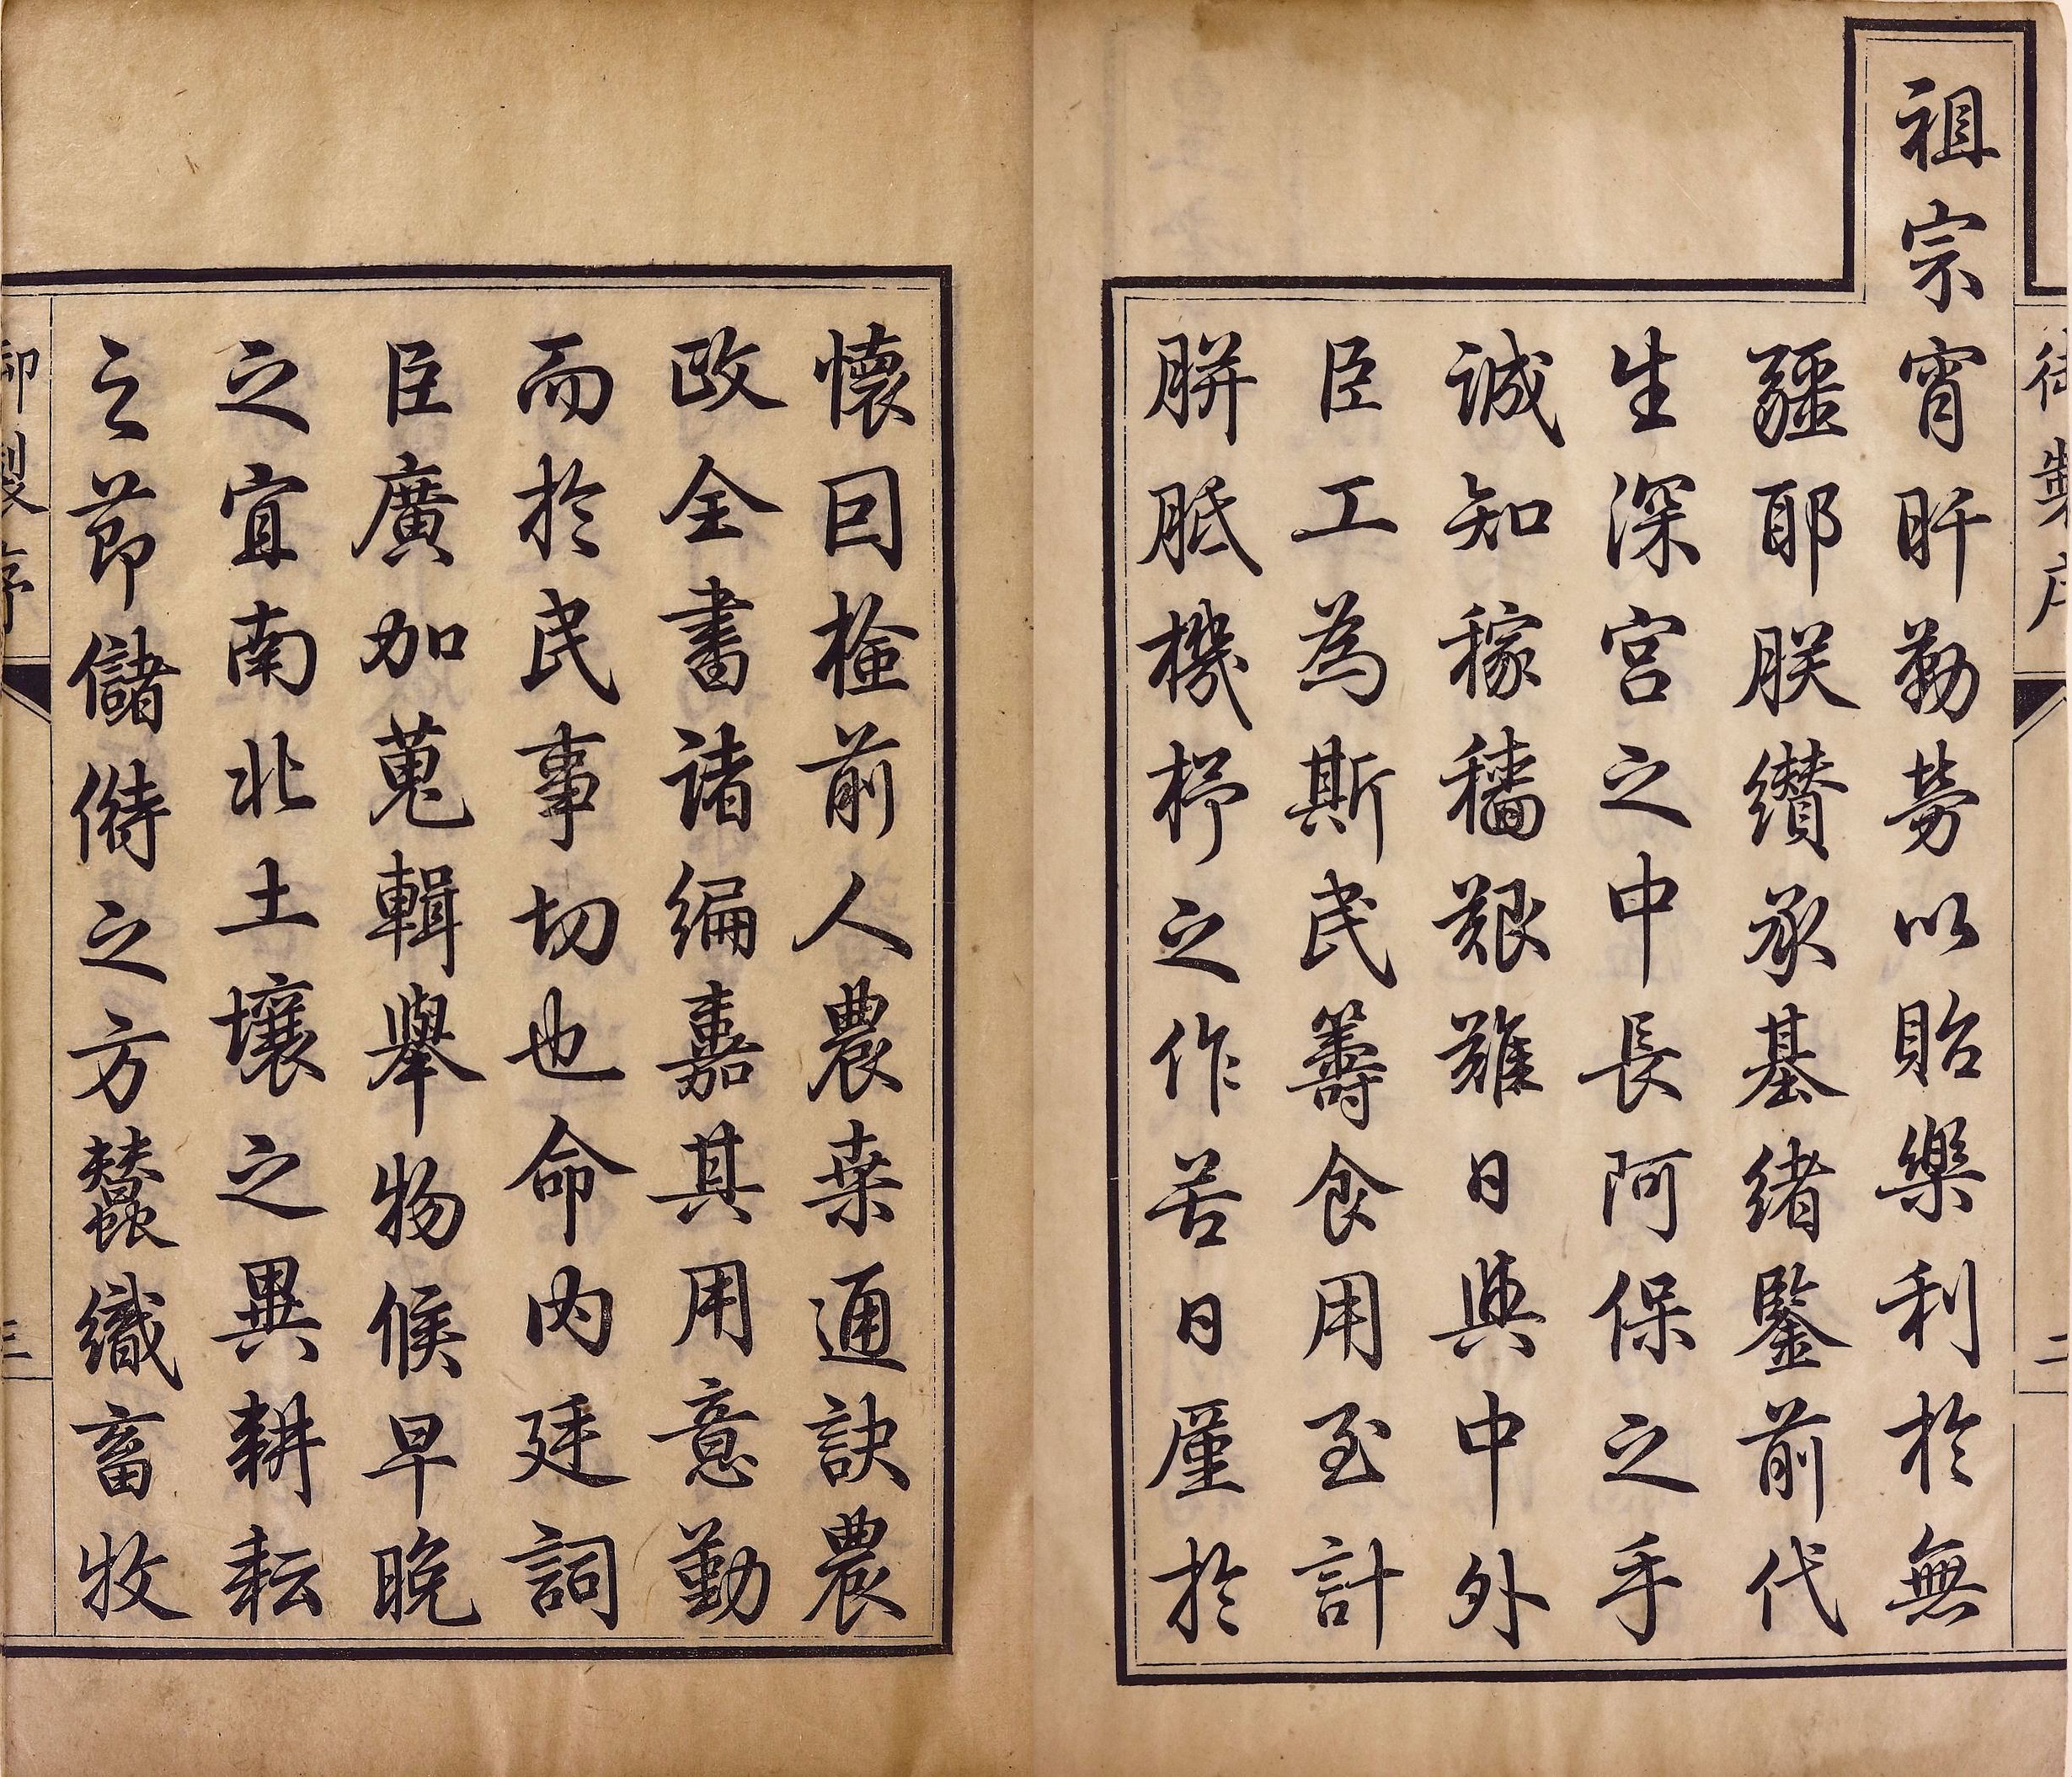 祖宗宵旰勤勞以貽樂利於無
疆耶朕纘承基緒鑒前代
生深宮之中長阿保之手
誠知稼穡艱難日與中外
臣工為斯民籌食用至計
胼胝機杼之作苦日廑於
懷囙檢前人農桒通訣農
政全書諸編嘉其用意勤
而於民事切也命內廷詞
臣廣加蒐輯舉物候早晚
之宜南北土壤之異耕耘
之節儲偫之方蠶織畜牧
御製序
三
御製序
二